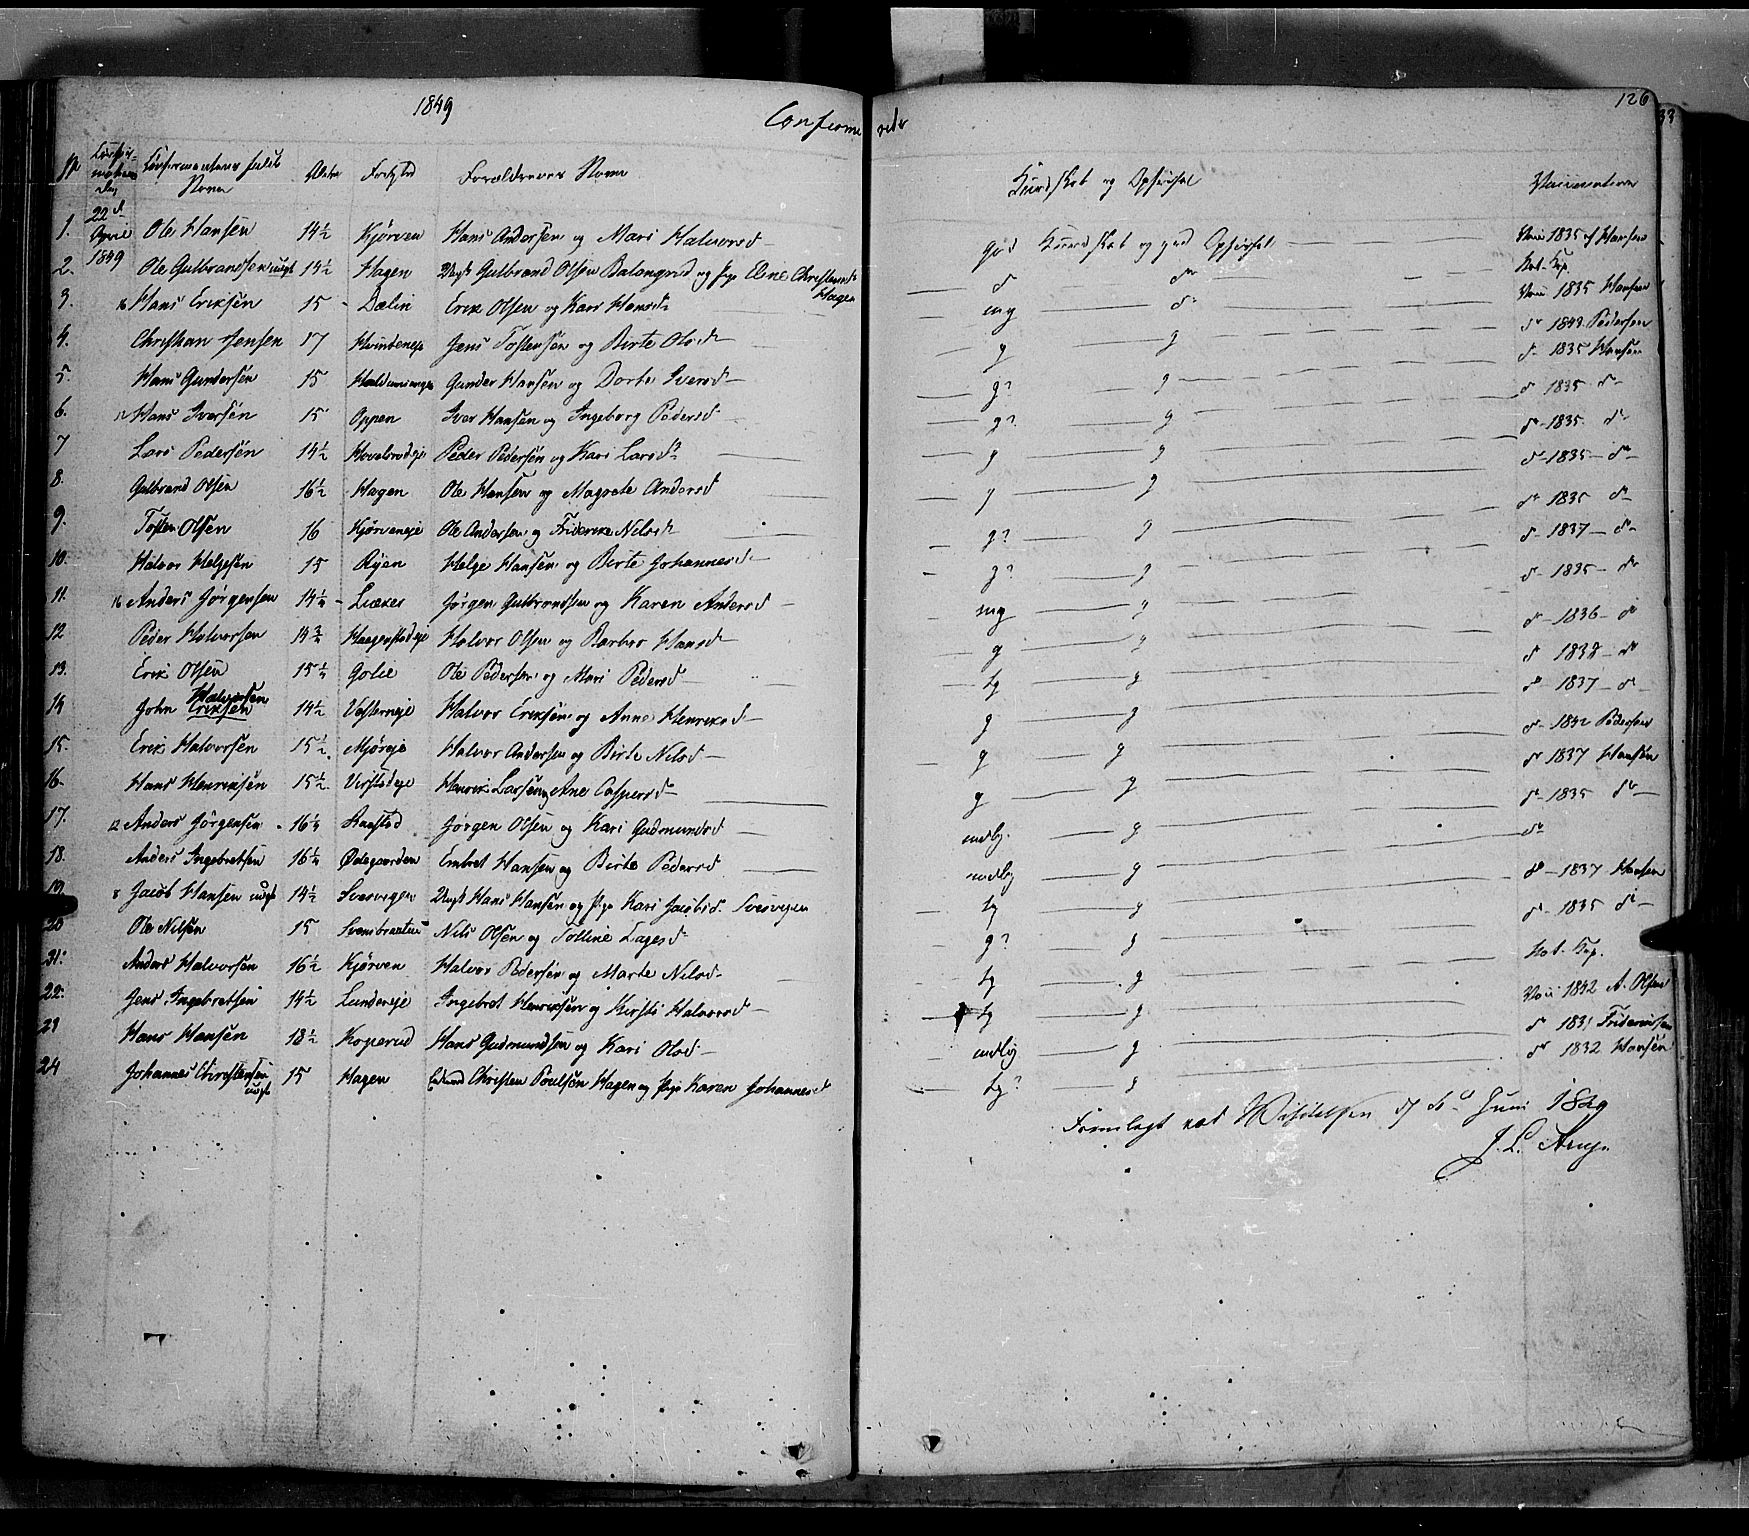 1849 Confirme rede 126
33
No Confirmations Dag Confirmantens fulde Navn Alder Fødested Forældrenes Navn Kundskab og Opførsel Vaccinationen
22d April 1849
1. Ole Hansen 14½ Kjørven Hans Andersen og Mari Halvorsd God Kundskab og god Opførsel Vacc 1835 af Hansen
2. Ole Gulbrandsen uægt 14½ Hagen Ungk Gulbrand Olsen og Pige Eline Christensd Hagen d d Nat. Kop.
3. 16 Hans Eriksen 15 Dælin Erik Olsen og Kari Hansd mg d Vacc 1835 Hansen
4. Christian Jensen 17 Jens Tostensen og Birte Olsd g g d 1842 Pedersen
5. Hans Gundersen 15 Gunder Hansen og Dorte Iversd g? g d 1835 Hansen
6. 12 Hans Iversen 15 Oppen Iver Hansen og Ingeborg Pedersd g? g d 1835 d
7 Lars Pedersen 14½ Peder Pedersen og Kari Larsd g g d 1835 d
8. Gulbrand Olsen 16½ Hagen Ole Hansen og Magrete Andersd g g d 1835 d
9. Tosten Olsen 16 Kjørveneje Ole Andersen og Friderike Nilsd g? g d 1835 d
10. Halvor Helgesen 15 Ryen Helge Hansen og Birte Johannesd g? g d 1837 d
11. 16 Anders Jørgensen 14¼ Jørgen Gulbrandsen og Karen Andersd mg " d 1835 d
12 Peder Halvorsen 14¾ Halvor Olsen og Barbro Hansd g " d 1836 d
13. Erik Olsen 15¼ Golie Ole Pedersen og Mari Pedersd tg g d 1838 d
14 John Halvorsen Eriksen 14½ Halvor Eriksen og Anne Henriksd g g d 1837 d
15. Erik Halvorsen 15½ Mjøreje Halvor Andersen og Birte Nilsd g g d 1842 Pedersen
16. Hans Henriksen 15½ Henrik Larsen og Ane Caspersd g g d 1837 Hansen
17. 12 Anders Jørgensen 16¼ Jørgen Olsen og Kari Gudmundsd mdlg. g d 1835 d
18. Anders Ingebretsen 16¼ Ødegaarden Embret Hansen og Birte Pedersd mdlg g d
19 8 Jacob Hansen uægt 14½ Svesvegen Ungk Hans Hansen og Pige Kari Jacobsd. Svesvegen tg g d 1837 Hansen
20 Ole Nilsen 15 Nils Olsen og g? g d 1835 d
21. Anders Halvorsen 16½ Kjørven Halvor Pedersen og Marte Nilsd tg g Nat. Kop.
22. Jens Ingebretsen 14½ Lundereje Ingebret Henriksen og Kirsti Halvorsd tg g Vacc 1842 A. Olsen
23 Hans Hansen 18½ Koperud Hans Gudmundsen og Kari Olsd mdlg g d 1831 Frideriksen
24 Johannes Christensen uægt 15 Hagen Christen Poulsen Hagen og Pige Karen Johannesd tg? g d 1832 Hansen
Fremlagt ved Visitatsen Juni 1849
J. L. Arup.